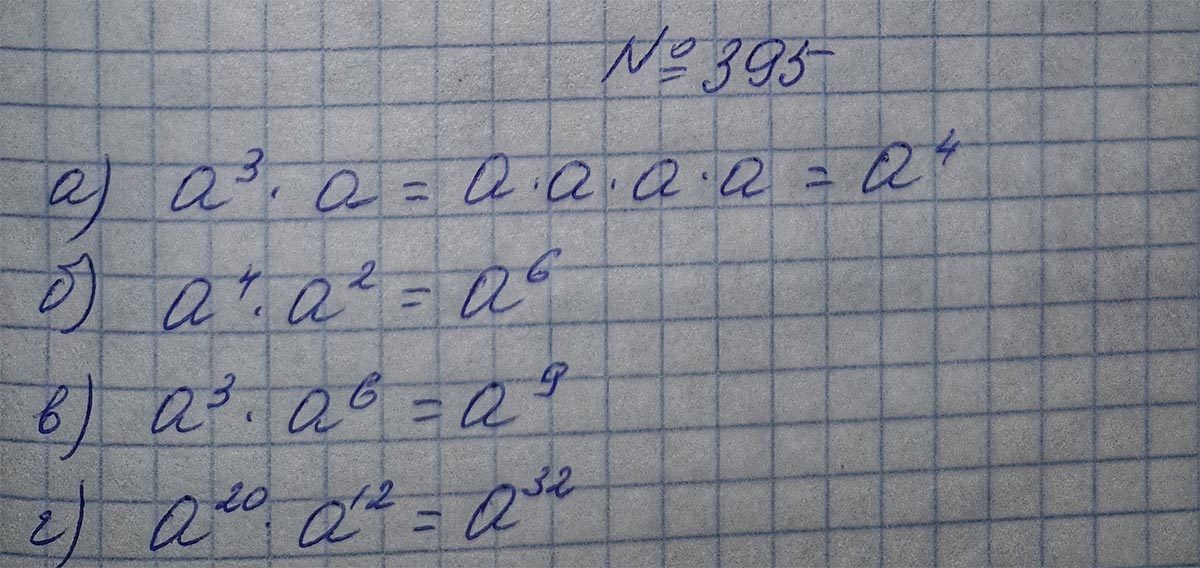 №395
а) a³ · a = a · a · a · a = a⁴
б) a⁴ · a² = a⁶
в) a³ · a⁶ = a⁹
г) a²⁰ · a¹² = a³²